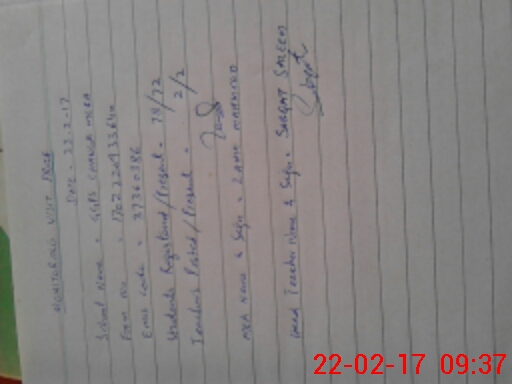 MONITORING VISIT PROOF
DATE = 22-2-17
School Name = GGPS CHANGA MERA
Form No =
Emis code = 37360386
Students Registered / Present = 78/72
Teachers Posted / Present = 2/2
MEA Name & Sign = ZAHIR MAHMOOD
Head Teacher Name & Sign = SABQAT SALEEM
22-02-17 09:37